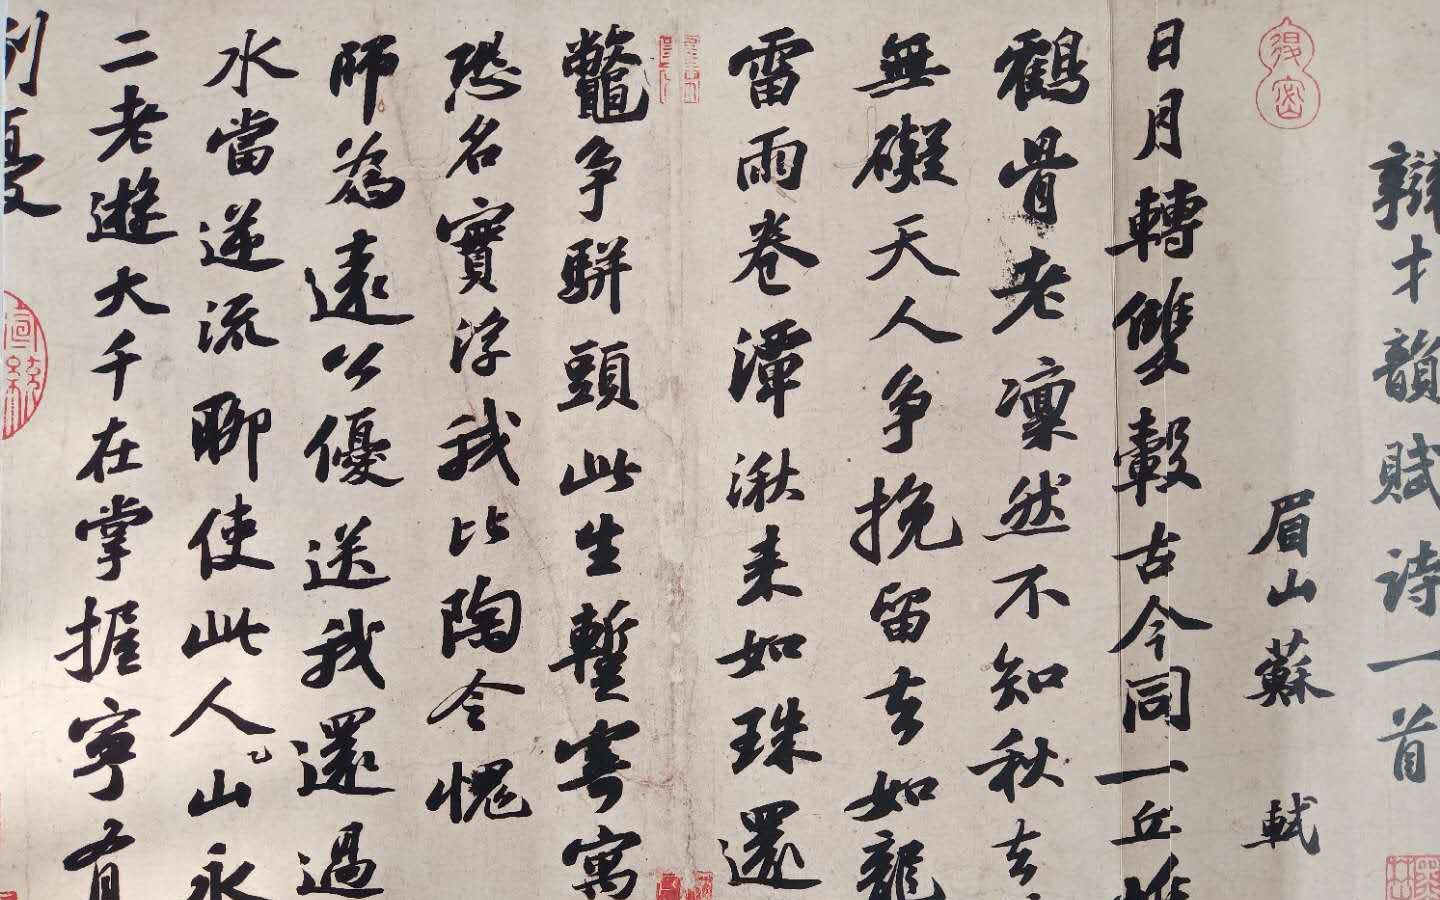 辯才韻賦詩一首
眉山蘇軾
日月轉雙轂古今同一丘惟
鶴骨老凜然不知秋去
無礙天人爭挽留去如龍
雷雨卷潭湫来如珠還
鼈爭駢頭此生蹔寄寓
恐名實浮我比陶令愧
師為遠公優送我還過
水當逆流聊使此人山永
二老遊大千在掌握寧有
別憂